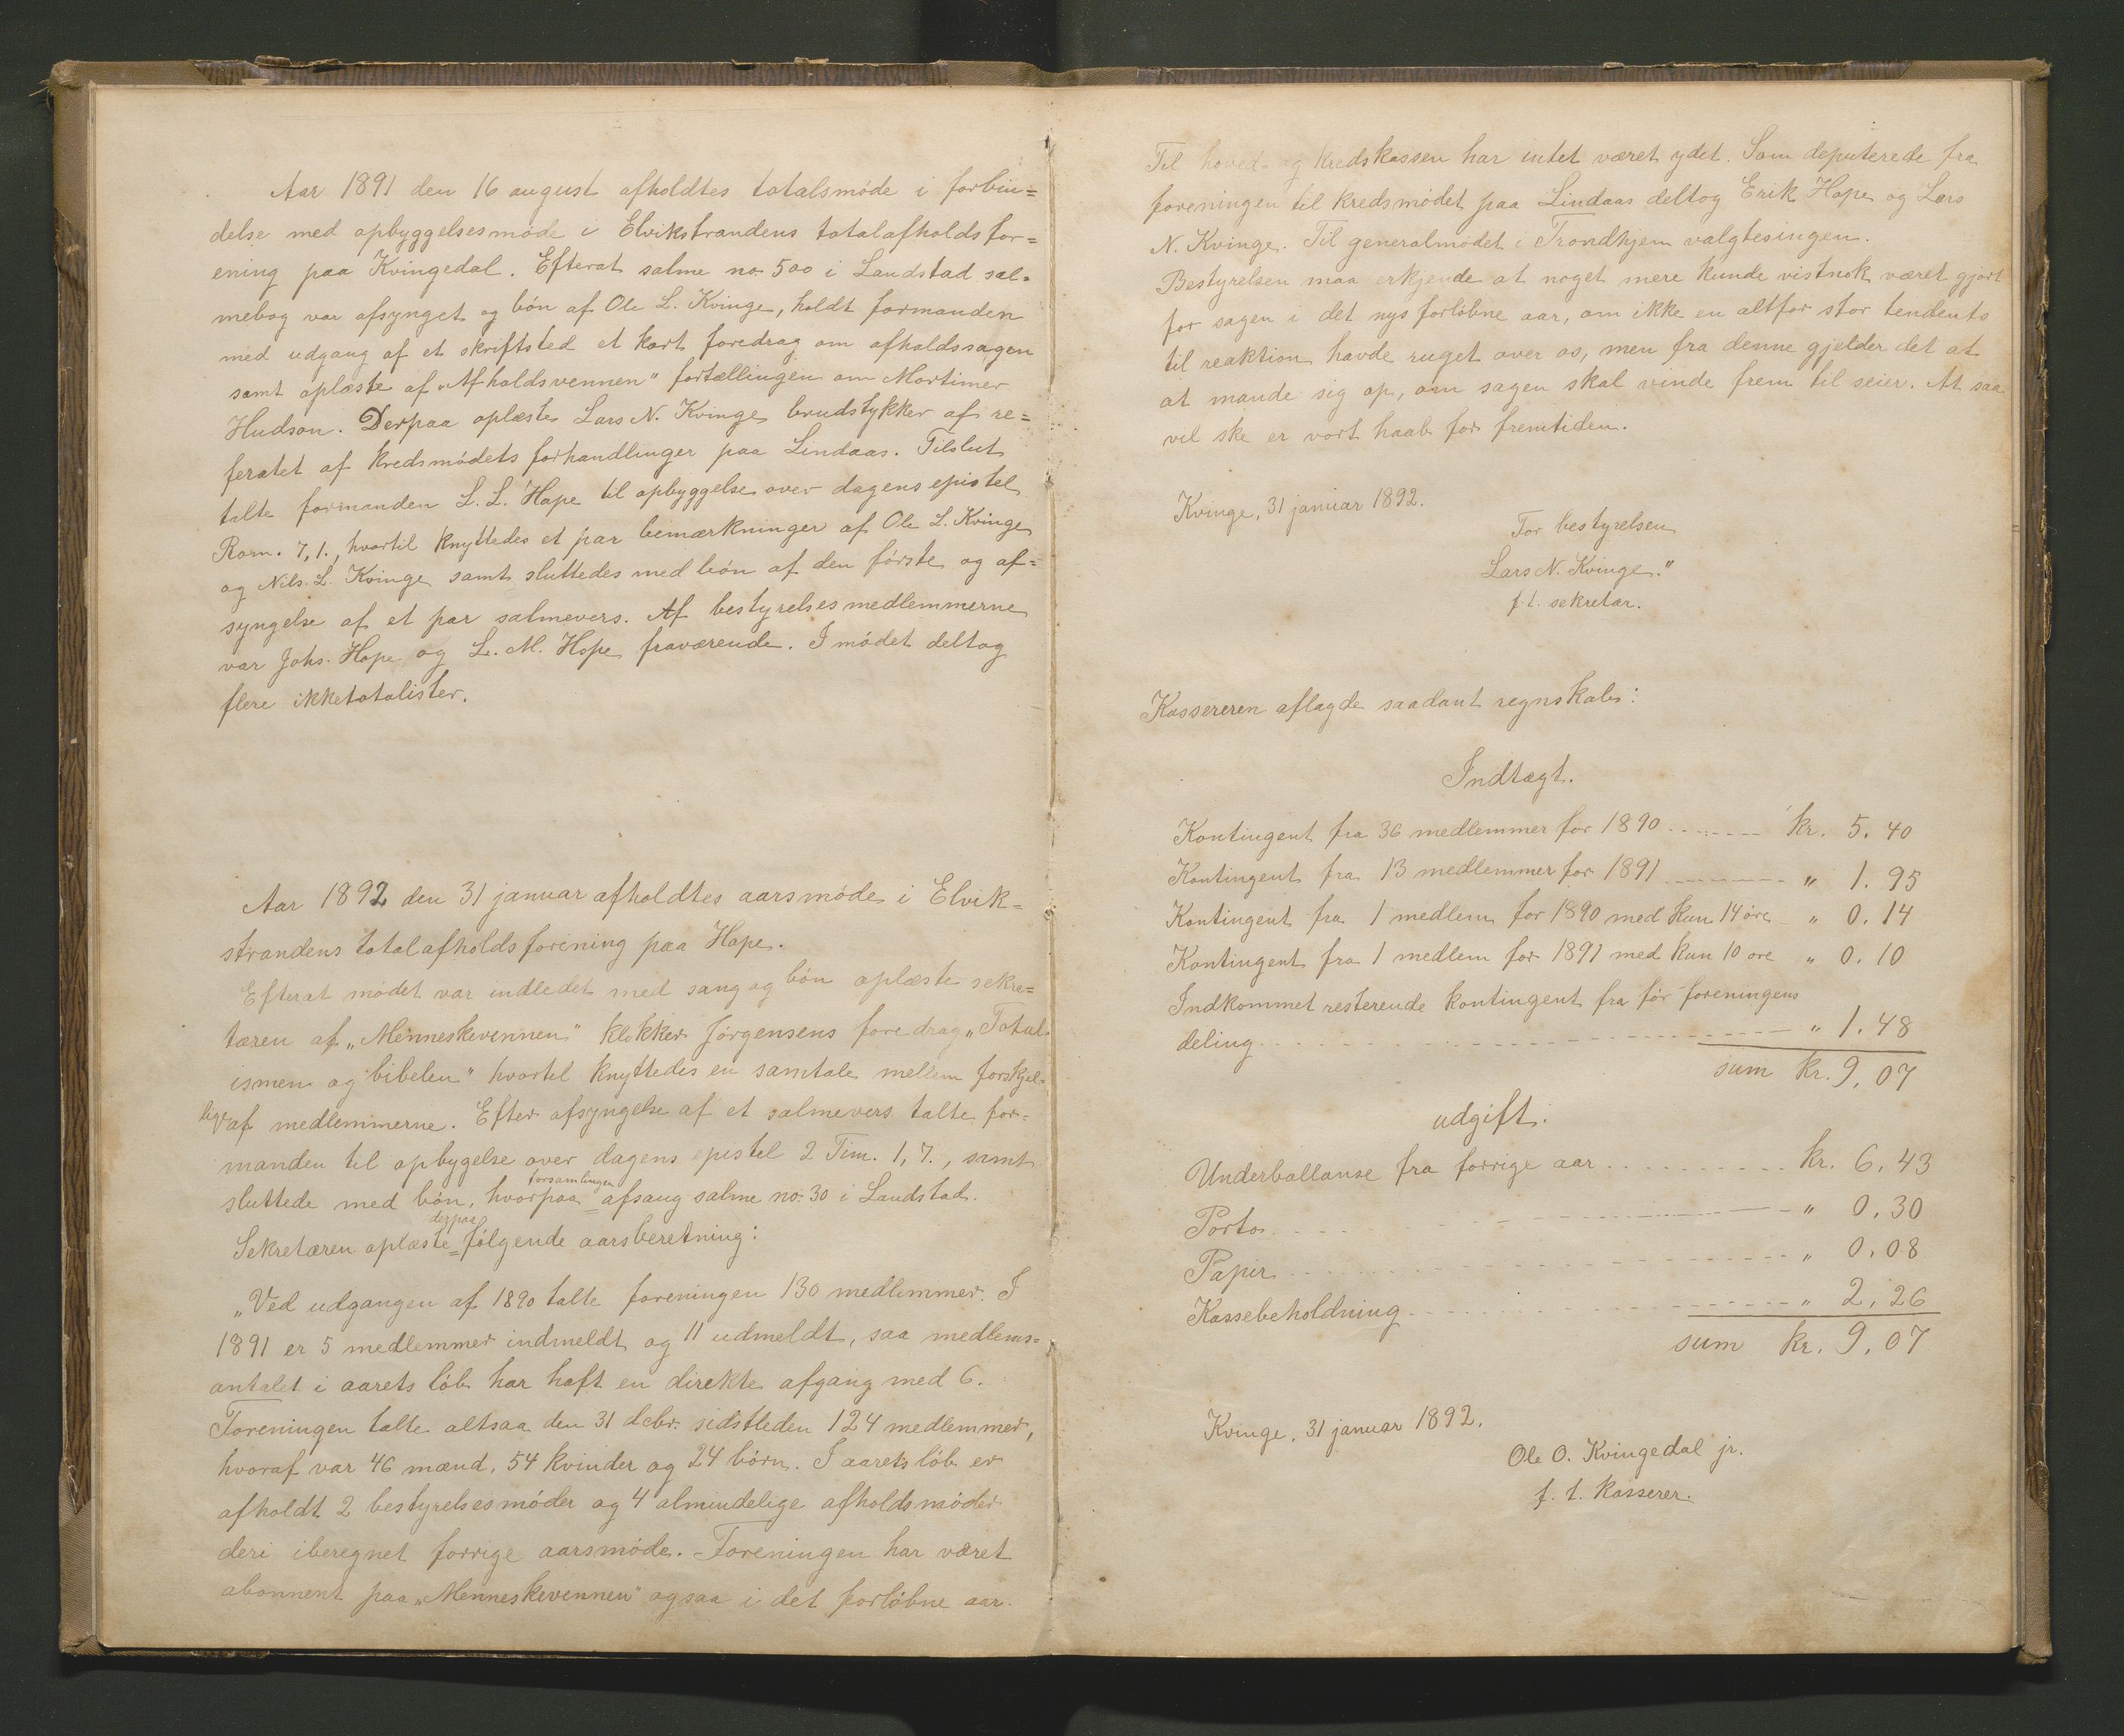 Aar 1891 den 16 august afholdtes totalsmöde i forbin=
delse med opbyggelsesmöde i Elvikstrandens totalafholdsfor=
ening paa Kvingedal. Efterat salme no 500 i Landstad sal=
mebog var afsynget og bön af Ole L. Kvinge, holdt formanden
med udgang af et skriftsted et kort foredrag om afholdssagen
samt oplæste af „Afholdsvennen" fortællingen om Mortimer
Hudson. Derpaa oplæste Lars N. Kvinge brudstykker af re=
feratet af kredsmödets forhandlinger paa Lindaas. Tilslut
talte formanden L. L. Hope til opbyggelse over dagens epistel
Rom. 7,1., hvortil knyttedes et par bemærkninger af Ole L. Kvinge
og Nils. L. Kvinge samt sluttedes med bön af den förste og af=
syngelse af et par salmevers. Af bestyrelsesmedlemmerne
var Johs. Hope og L. M. Hope fraværende. I mödet deltog
flere ikketotalister.
Aar 1892 den 31 januar afholdtes aarsmöde i Elvik=
strandens totalafholdsforening paa Hope.
Efterat mödet var indledet med sang og bön oplæste sekre=
tæren af „Menneskevennen" klokker Jörgensens foredrag „Total=
ismen og bibelen" hvortil knyttedes en samtale mellem forskjel=
lige af medlemmerne. Efter afsyngelse af et salmevers talte for=
manden til opbygelse over dagens epistel 2 Tim. 1,7., samt
sluttede med bön, hvorpaa forsamlingen afsang salme no. 30 i Landstad.
Sekretæren oplæste derpaa fölgende aarsberetning:
„Ved udgangen af 1890 talte foreningen 130 medlemmer. I
1891 er 5 medlemmer indmeldt og 11 udmeldt, saa medlems=
antalet i aarets löb har haft en direkte afgang med 6.
Foreningen talte altsaa den 31 debr. sidstleden 124 medlemmer,
hvoraf var 46 mænd, 54 kvinder og 24 börn. I aarets löb er
afholdt 2 bestyrelsesmöder og 4 almindelige afholdsmöder
deri iberegnet forrige aarsmöde. Foreningen har været
abonnent paa „Menneskevennen" ogsaa i det forlöbne aar.
Til hoved- og kredskassen har intet været ydet. Som deputerede fra
foreningen til kredsmödet paa Lindaas deltog Erik Hope og Lars
N. Kvinge. Til generalmödet i Trondhjem valgtes ingen.
Bestyrelsen maa erkjende at noget mere kunde vistnok været gjort
for sagen i det nys forlöbne aar, om ikke en altfor stor tendents
til reaktion havde ruget over os, men fra denne gjelder det at
at mande sig op, om sagen skal vinde frem til seier. At saa
vil ske er vort haab for fremtiden.
Kvinge, 31 januar 1892.
For bestyrelsen
Lars N. Kvinge."
f. t. sekretær.
Kassereren aflagde saadant regnskab:
Indtægt.
Kontingent fra 36 medlemmer for 1890 ........ kr. 5.40
Kontingent fra 13 medlemmer for 1891 ........ „ 1.95
Kontingent fra 1 medlem for 1890 med kun 14 öre „ 0.14
Kontingent fra 1 medlem for 1891 med kun 10 öre „ 0.10
Indkommet resterende kontingent fra för foreningens
deling ........ „ 1.48
sum kr. 9,07
udgift.
Underballanse fra forrige aar ........ kr. 6,43
Porto ........ „ 0,30
Papir ........ „ 0,08
Kassebeholdning ........ „ 2,26
sum kr. 9,07
Kvinge, 31 januar 1892.
Ole O. Kvingedal jr.
f. t. kasserer.